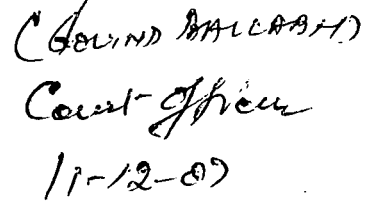 (GOVIND BALLABH)
Court Officer
11-12-09